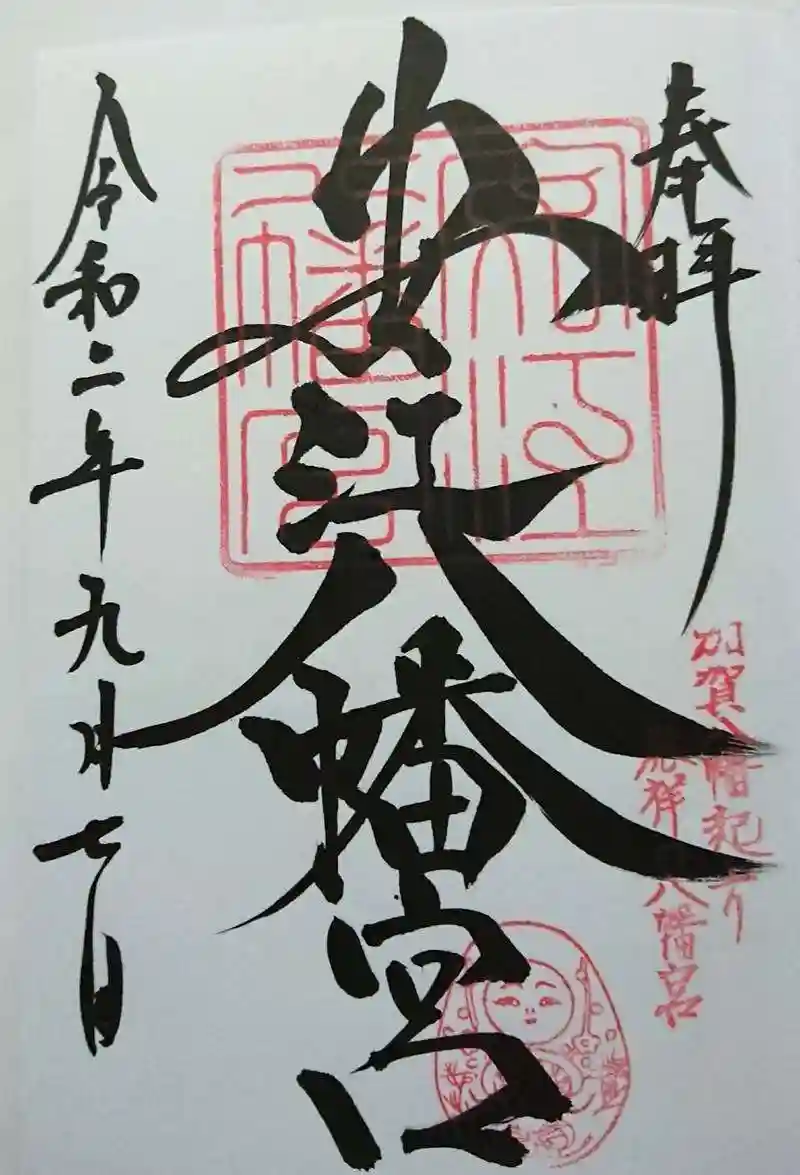 奉拝
加賀八幡起上り
発祥の八幡宮
安江八幡宮
安江八幡宮
令和二年九月七日